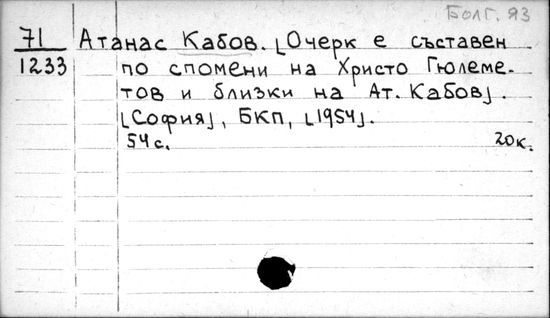 Болг. яз
71 Атанас Кабов. [Очерк е съставен
1233 по спомени на Христо Гюлеме-
тов и близки на Ат. Кабов].
[София], БКП, [1954].
54 с. 20 к.